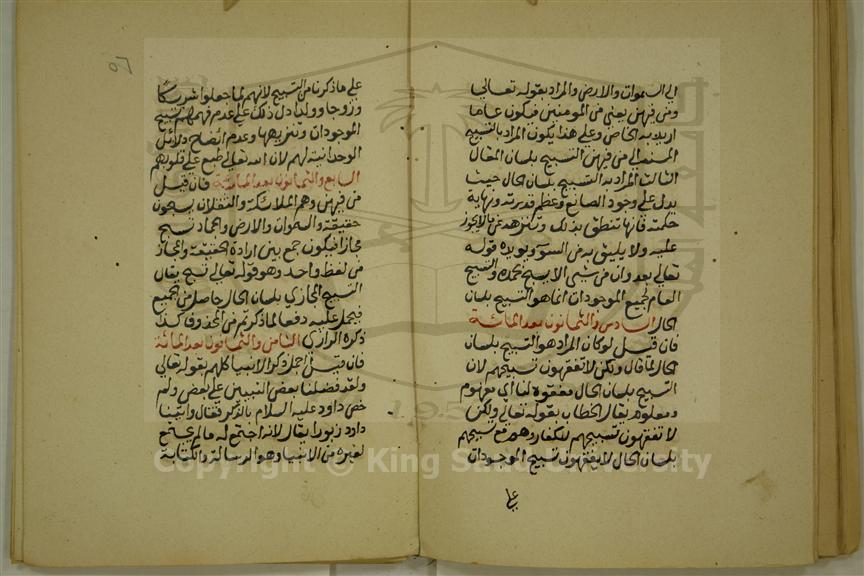 الى السموات والارض والمراد بقوله تعالى
ومن فيهن يعني من المومنين فيكون عاما
اريد به الخاص وعلى هذا يكون المراد بالتسبيح
المسند الى من فيهن التسبيح بلسان المقال
الثالث المراد به التسبيح بلسان الحال حيث
يدل على وجود الصانع وعظم قدرته ونهاية
حكمته فانها تنطق بذلك وتنزهه عن ما لا يجوز
عليه ولا يليق به من السوء ويويده قوله
تعالى بعد وان من شي الا يسبح بحمده والتسبيح
العام لجميع الموجودات انما هو التسبيح بلسان
الحال السادس والثمانون بعد المائة
فان قيل لو كان المراد هو التسبيح بلسان
الحال لما قال ولكن لا تفقهون تسبيحهم لان
التسبيح بلسان الحال مفقوه لنا اي مفهوم
ومعلوم يقال الخطاب بقوله تعالى ولكن
لا تفقهون تسبيحهم للكفار وهم مع تسبيحهم
بلسان الحال لا يفقهون تسبيح الموجودات
على
٥٦
على ما ذكرنا من التسبيح لانهم لما جعلوا شريكا
وزوجا وولدا دل ذلك على عدم فهمهم تسبيح
الموجودات وتنزيهها وعدم اتضاح دلائل
الوحدانية لهم لان الله تعالى طبع على قلوبهم
السابع والثمانون بعد المائة فان قيل
من فيهن وهم الملائكة والثقلان يسبحون
حقيقة والسموات والارض والجماد تسبح
مجازا فيكون جمع بين ارادة الحقيقة والمجاز
من لفظ واحد وهو قوله تعالى تسبح يقال
التسبيح المجازي بلسان الحال حاصل من الجميع
فيحمل عليه دفعا لما ذكرتم من المحذوف كذا
ذكره الرازي الثامن والثمانون بعد المائة
فان قيل اجمل ذكر الانبيا كلهم بقوله تعالى
ولقد فضلنا بعض النبيين على بعض ولم
خص داود عليه السلام بالذكر فقال واتينا
داود زبورا يقال لانه اجتمع له ما لم يجتمع
لغيره من الانبيا وهو الرسالة والكتابة
Copyright © King Saud University
1957